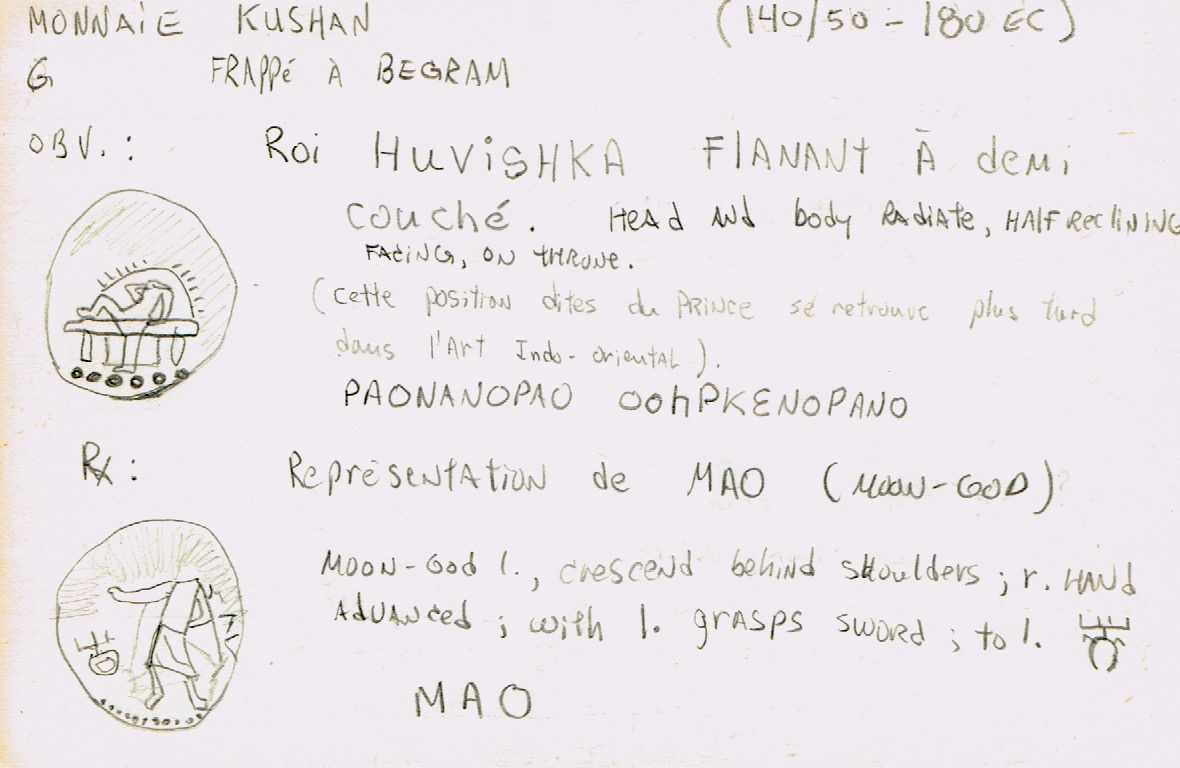 MONNAIE KUSHAN (140/50 - 180 EC)
G FRAPPé À BEGRAM
OBV. : Roi HUVISHKA FLANANT À demi
couché. HEAd AND body RADIATE, HALF RECLINING
FACING, ON THRONE.
(cette position dites du PRINCE se retrouve plus tard
dans l'Art Indo-oriental).
PAONANOPAO OOhPKENOPANO
Rx : Représentation de MAO (MOON-GOD)?
MOON-God l., crescend behind shoulders ; r. HAND
ADVANCEd ; with l. grasps sword ; to l.
MAO